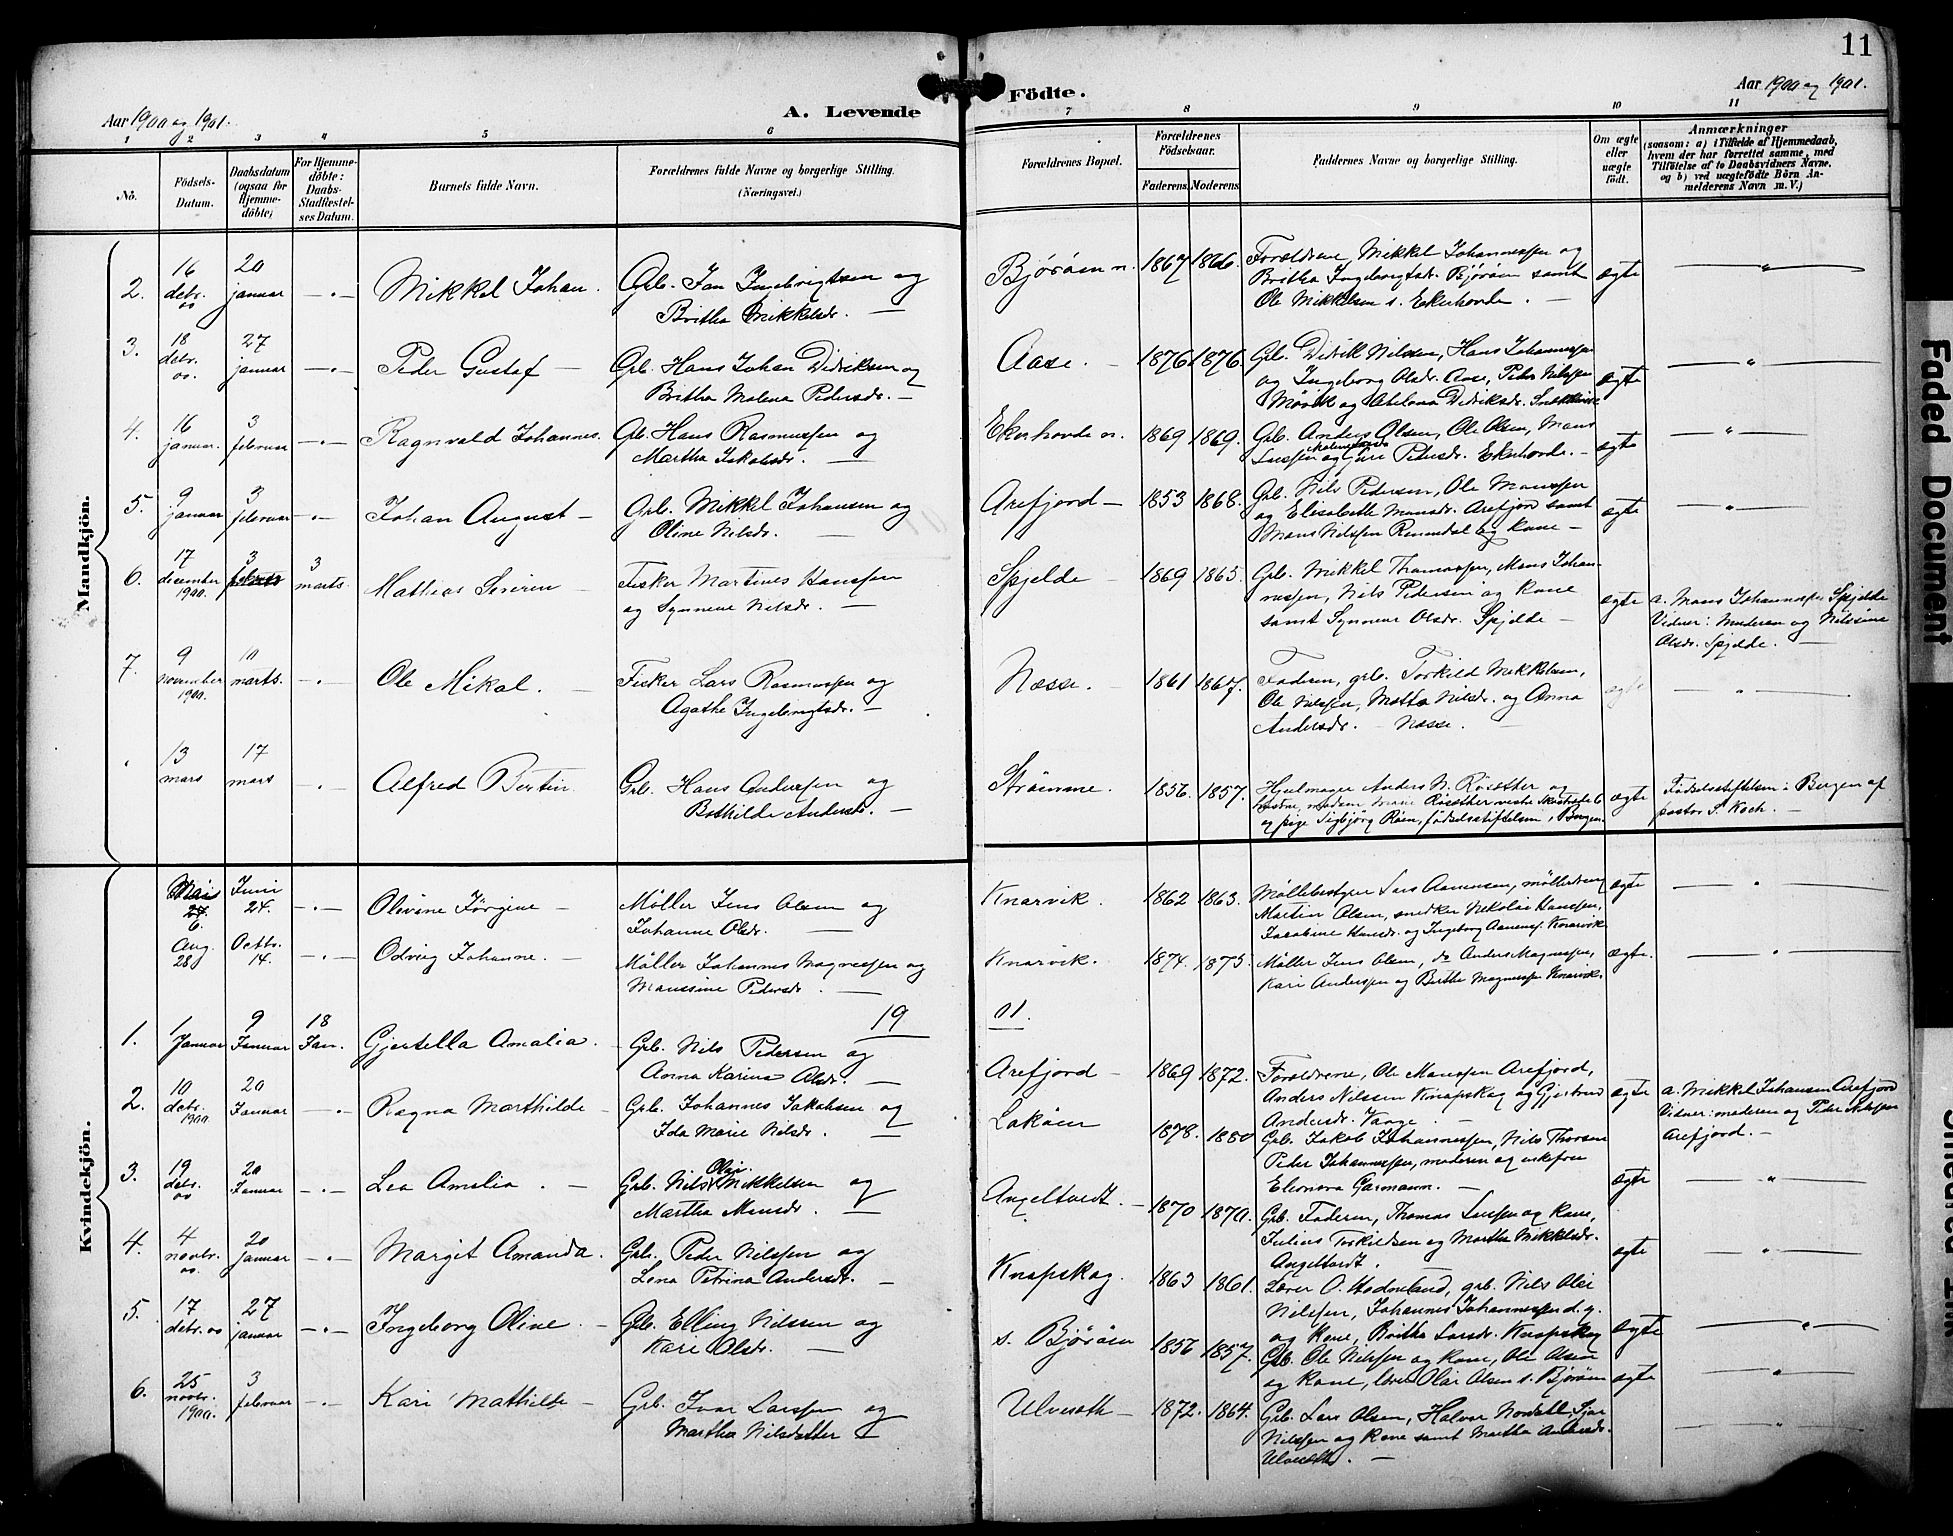 11
Aar 1900 og 1901.
A. Levende
Födte.
Aar 1900 og 1901.
1 2 3 4 5 6 7 8 9 10 11
No.
Födsels-
Datum.
Daabsdatum
(ogsaa for
Hjemme-
döbte)
For Hjemme-
döbte:
Daabs-
Stadfæstel-
ses Datum.
Barnets fulde Navn.
Forældrenes fulde Navne og borgerlige Stilling.
(Næringsvei.)
Forældrenes Bopæl.
Forældrenes
Födselsaar.
Faderens. Moderens.
Faddernes Navne og borgerlige Stilling.
Om ægte
eller
uægte
født.
Anmærkninger
(saasom: a) i Tilfælde af Hjemmedaab,
hvem der har forrettet samme, med
Tilföielse af to Daabsvidners Navne,
og b) ved uægtefödte Börn An-
melderens Navn m. V.)
Mandkjön.
2. 16 decbr. 00 20 januar Mikkel Johan. Grb. Jan Ingebrigtsen og
Britha Mikkelsdr.
Bjørøen n. 1867 1866. Forældrene, Mikkel Johannessen og
Britha Ingebrigtsdr. Bjørøen samt
Ole Mikkelsen s. Ekerhovde. ægte
3. 18 decbr. 00. 27 januar Peder Gustaf Grb. Hans Johan Didriksen og
Britha Malena Pedersdr.
Aase. 1876 1876. Grb. Didrik Nilsen, Hans Johannessen
og Ingeborg Olsdr. Aase, Peter Nilssen
Møvik og Didriksdr. ægte
4. 16 januar. 3 februar Ragnvald Johannes. Grb. Hans Rasmussen og
Martha Jakobsdr.
Ekerhovde n. 1869 1869. Grb. Anders Olsen, Ole Olsen, Mons
Larssen og Pedersdr. Ekerhovde. ægte
5. 9 januar 3 februar Johan August Grb. Mikkel Johansen og
Oline Nilsdr.
Arefjord 1853 1868. Grb. Nils Pedersen, Ole Monssen
og Elisabeth Monsdr. Arefjord samt
Mons Nilssen og kone ægte
6. 17 december 1900. 3 februar 3 marts. Mathias Severin Fisker Martines Hanssen
og Synneve Nilsdr.
Spjelde 1869 1865. Grb. Mikkel Thomassen, Mons Johan-
nessen, Nils Pedersen og kone
samt Synneve Olsdr. Spjelde ægte
a. Mons Johannessen Spjelde
Vidner: moderen og Nilsine
Olsdr. Spjelde.
7. 9 november 1900. 10 marts. Ole Mikal. Fisker Lars Rasmussen og
Agathe Ingebrigtsdr.
Næsse. 1861 1867. Faderen, grb. Torkild Mikkelsen,
Ole Nilssen, Nilsdr. og Anna
Andersdr. Næsse. ægte
13 mars 17 mars Alfred Bertin. Grb. Hans Anderssen og
Bothilde Andersdr.
Strømme. 1856. 1857. Hjulmager Anders N. Røsether og
ægte
Fødselsstiftelsen i Bergen af
pastor S. Koch.
Kvindekjön.
Mai 27. 6. Juni 24. Olivine Jørgine Møller Jens Olsen og
Johanne Olsdr.
Knarvik. 1862 1863. Møllebestyrer Lars Aamensen,
Martin Olsen, snedker Nikolai Hanssen,
Jacobine Hansdr. og Ingeborg Knarvik. ægte
Aug. 28 Octbr. 14. Odvig Johanne. Møller Johannes Magnussen og
Monssine Pedersdr.
Knarvik. 1874. 1875. Møller Jens Olsen, do Anders Magnussen,
Kari Anderssen og Birthe Magnussen Knarvik. ægte.
19
01.
1. 1 Januar 9 Januar 18 Jan. Gjertella Amalia. Grb. Nils Pedersen og
Anna Karina Olsdr.
Arefjord 1869 1872. Forældrene, Ole Monssen Arefjord,
Anders Nilssen Knapskog og Gjertrud
Andersdr. Vange. ægte
a. Mikkel Johansen Arefjord
Vidner: moderen og Peder Nilssen
Arefjord.
2. 10 decbr. 1900. 20 Januar Ragna Marthilde Grb. Johannes Jakobsen og
Ida Marie Nilsdr.
Lokøen 1878. 1880 Grb. Jakob Johannessen, Nils Thorsen
Peder Johannessen, moderen og enkefrue
Eleonora Garmann. ægte
3. 19 decbr. 00 20 Januar Lea Amalia. Grb. Nils Olai Mikkelsen og
Martha Monsdr.
Angeltvedt. 1870 1870. Grb. Faderen, Thomas Larssen og kone,
Julius Torkildsen og Martha Mikkelsdr.
Angeltvedt. ægte
4. 4 novbr. 00. 20 januar Margit Amanda. Grb. Peder Nilssen og
Lena Petrina Andersdr.
Knapskog. 1863 1861. Lærer O. Hodneland, grb. Nils Olai
Nilssen, Johannes Johannessen d. y.
og kone, Britha Larsdr. Knapskog ægte
5. 17 decbr. 00 27 januar Ingeborg Oline. Grb. Elling Nilssen og
Kari Olsdr.
s. Bjørøen 1856 1857. Grb. Ole Nilssen og kone, Ole Olsen
og kone, lærer Olai Olsen s. Bjørøen ægte
6. 25 novbr. 1900. 3 februar Kari Mathilde Grb. Ivar Larssen og
Martha Nilsdatter
Ulveseth 1872. 1864. Grb. Lars Olsen, Halvor Nordahl,
Nilssen og kone samt Martha
Ulveseth.
Faded Document